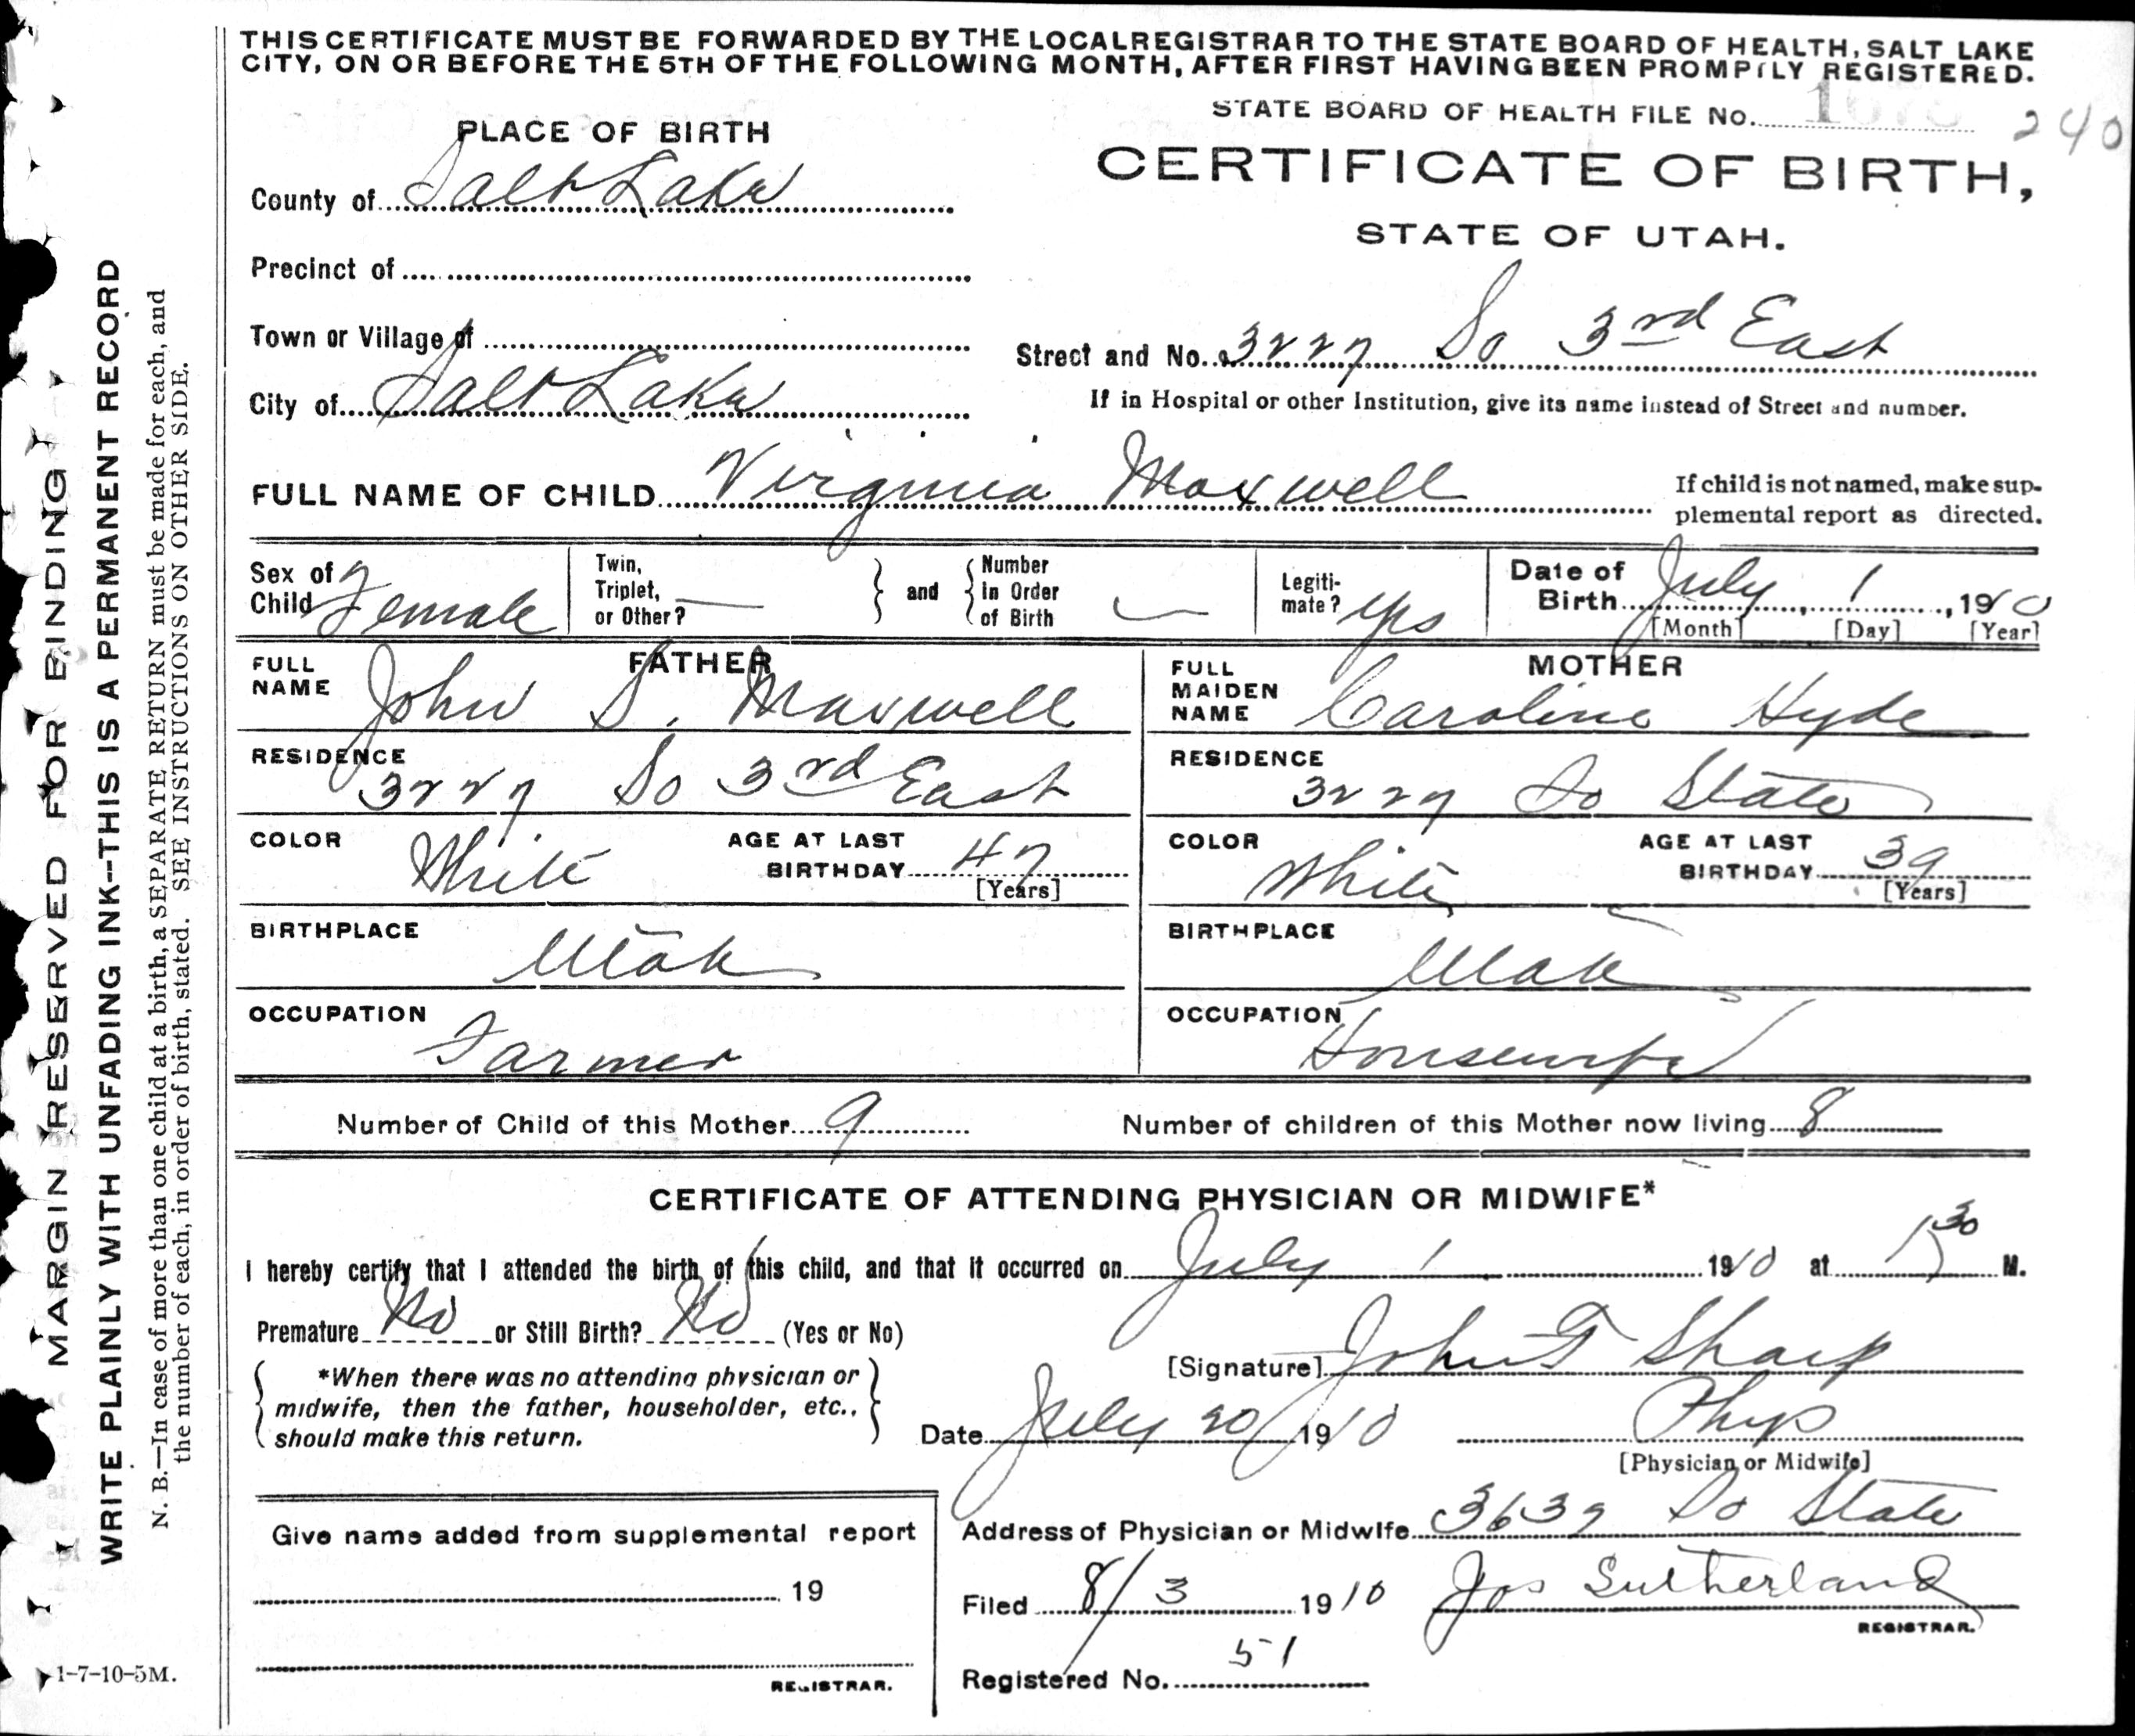 THIS CERTIFICATE MUST BE FORWARDED BY THE LOCAL REGISTRAR TO THE STATE BOARD OF HEALTH, SALT LAKE
CITY, ON OR BEFORE THE 5TH OF THE FOLLOWING MONTH, AFTER FIRST HAVING BEEN PROMPTLY REGISTERED.
STATE BOARD OF HEALTH FILE No. 240
PLACE OF BIRTH
CERTIFICATE OF BIRTH,
STATE OF UTAH.
County of Salt Lake
Precinct of
Town or Village of
Street and No. 3227 So 3rd East
City of Salt Lake
If in Hospital or other Institution, give its name instead of Street and number.
FULL NAME OF CHILD Virginia Maxwell
If child is not named, make sup-
plemental report as directed.
Sex of Child Female
Twin, Triplet, or Other? —
and
Number in Order of Birth —
Legiti-
mate? Yes
Date of Birth July 1, 1910
[Month] [Day] [Year]
FATHER
FULL NAME John S. Maxwell
RESIDENCE 3227 So 3rd East
COLOR White
AGE AT LAST BIRTHDAY 47
[Years]
BIRTHPLACE Utah
OCCUPATION Farmer
MOTHER
FULL MAIDEN NAME Caroline Hyde
RESIDENCE 3227 So State
COLOR White
AGE AT LAST BIRTHDAY 39
[Years]
BIRTHPLACE Utah
OCCUPATION Housewife
Number of Child of this Mother 9
Number of children of this Mother now living 8
CERTIFICATE OF ATTENDING PHYSICIAN OR MIDWIFE*
I hereby certify that I attended the birth of this child, and that it occurred on July 1 1910 at M.
Premature No or Still Birth? No (Yes or No)
*When there was no attending physician or
midwife, then the father, householder, etc.,
should make this return.
[Signature] John T Sharp
Date July 20 1910 Phys
[Physician or Midwife]
Address of Physician or Midwife 3639 So State
Filed 8/3 1910 Jos Sutherland
REGISTRAR.
Registered No. 51
Give name added from supplemental report
19
REGISTRAR.
MARGIN RESERVED FOR BINDING
WRITE PLAINLY WITH UNFADING INK--THIS IS A PERMANENT RECORD
N. B.—In case of more than one child at a birth, a SEPARATE RETURN must be made for each, and
the number of each, in order of birth, stated. SEE INSTRUCTIONS ON OTHER SIDE.
1-7-10-5M.